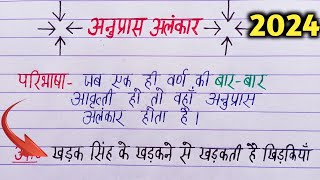 अनुप्रास अलंकार
2024
परिभाषा- जब एक ही वर्ण की बार-बार
आवृत्ती हो तो वहाँ अनुप्रास
अलंकार होता है।
उदा०- खड़क सिंह के खड़कने से खड़कती है खिड़कियाँ